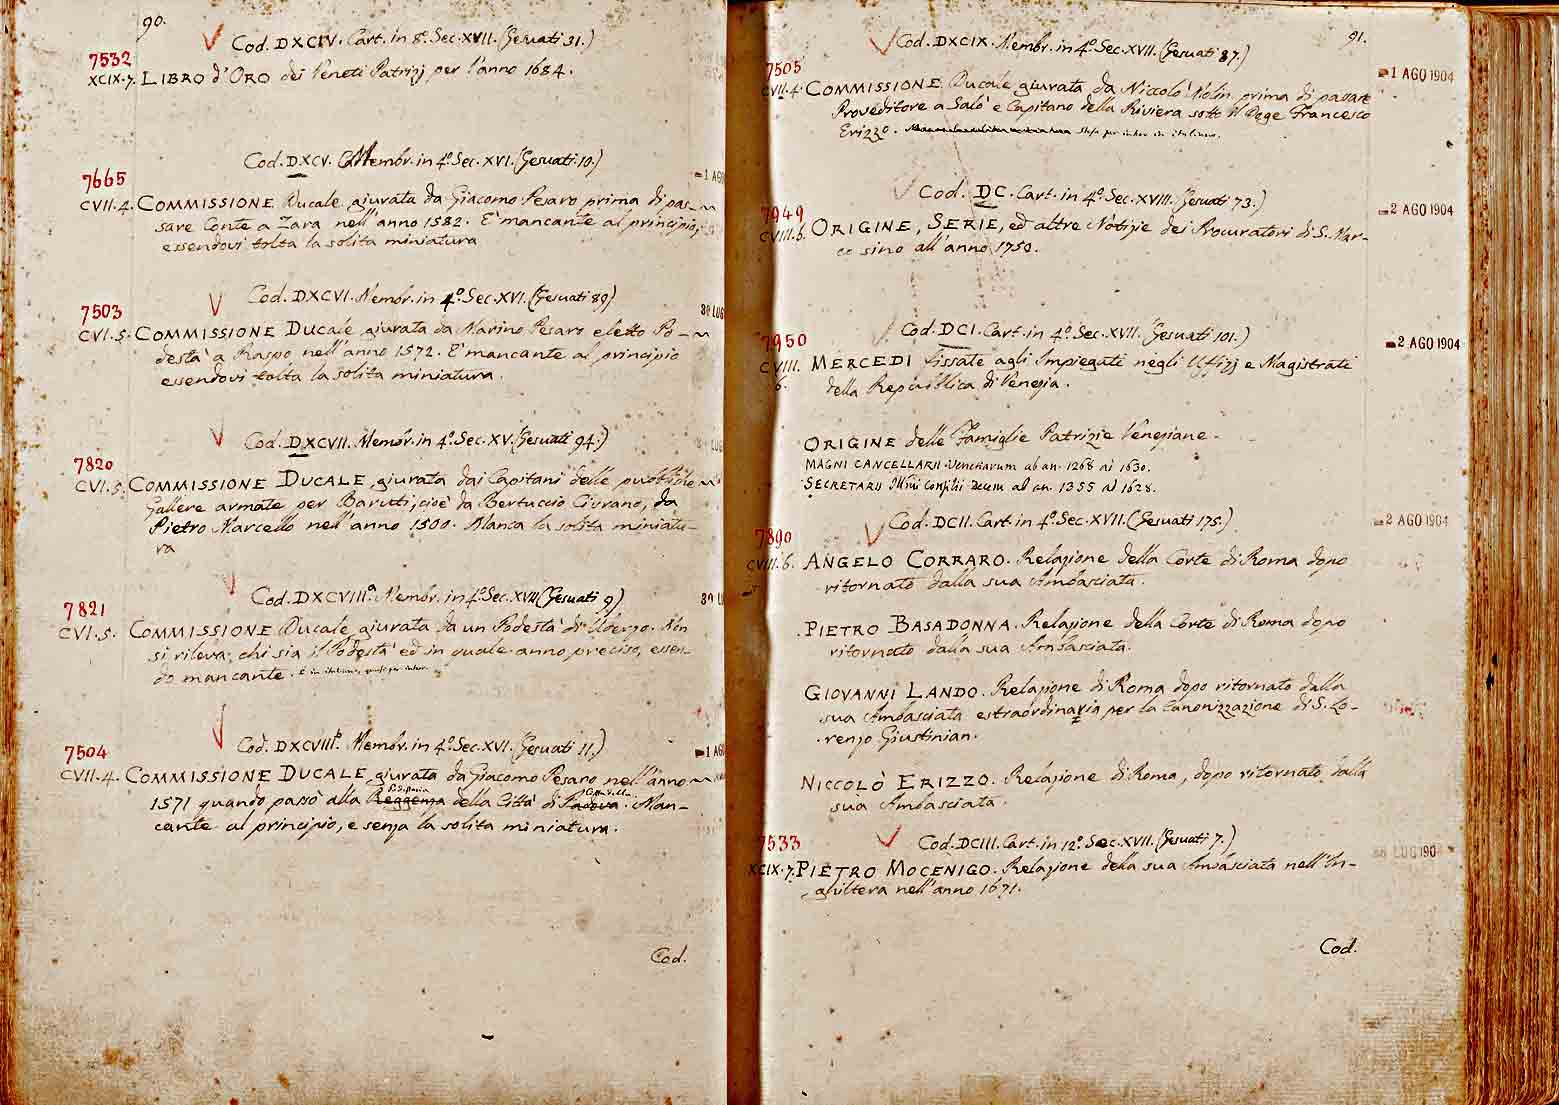 90.
Cod. DXCIV. Cart. in 8º. Sec. XVII. (Gesuati 31.)
7532
XCIX.7. LIBRO d'ORO dei Veneti Patrizj per l'anno 1684.
Cod. DXCV. Membr. in 4º. Sec. XVI. (Gesuati 10.)
7665
1 AGO
CVII.4. COMMISSIONE Ducale giurata da Giacomo Pesaro prima di pas-
sare Conte a Zara nell'anno 1582. E' mancante al principio,
essendovi tolta la solita miniatura
Cod. DXCVI. Membr. in 4º. Sec. XVI. (Gesuati 89)
7503
30 LUG
CVI.5. COMMISSIONE DUCALE giurata da Marino Pesaro eletto Po-
destà a Raspo nell'anno 1572. E' mancante al principio
essendovi tolta la solita miniatura.
Cod. DXCVII. Membr. in 4º. Sec. XV. (Gesuati 94.)
7820
CVI.5. COMMISSIONE DUCALE, giurata dai Capitani delle pubbliche
Gallere armate per Barutti, cioè da Bertuccio Civrano, da
Pietro Marcello nell'anno 1500. Manca la solita miniatu-
ra
Cod. DXCVIIIª. Membr. in 4º. Sec. XVII (Gesuati 9)
7821
30 LU
CVI.5. COMMISSIONE Ducale, giurata da un Podestà di Uderzo. Non
si rileva, chi sia il Podestà ed in quale anno preciso, essen-
do mancante. È in italiano, quasi per intero.
Cod. DXCVIIIᵇ. Membr. in 4º. Sec. XVI. (Gesuati 11.)
7504
1 AGO
CVII.4. COMMISSIONE DUCALE, giurata da Giacomo Pesaro nell'anno
1571 quando passò alla Reggenza della Città di Padova. Man-
cante al principio, e senza la solita miniatura.
Cod.
91.
Cod. DXCIX. Membr. in 4º. Sec. XVII. (Gesuati 87.)
7505
1 AGO 1904
CVII.4. COMMISSIONE Ducale giurata da Niccolò Molin prima di passare
Proveditore a Salò e Capitano della Riviera sotto il Doge Francesco
Erizzo.
Cod. DC. Cart. in 4º. Sec. XVIII. (Gesuati 73.)
7949
2 AGO 1904
CVIII.6. ORIGINE, SERIE, ed altre Notizie dei Procuratori di S. Mar-
co sino all'anno 1750.
Cod. DCI. Cart. in 4º. Sec. XVII. (Gesuati 101.)
7950
2 AGO 1904
CVIII. MERCEDI fissate agli Impiegati negli Uffizj e Magistrati
6. della Repubblica di Venezia.
ORIGINE delle Famiglie Patrizie Veneziane.
MAGNI CANCELLARII Venetiarum ab an. 1268 ad 1630.
SECRETARII Illmi Consilii Decem ab an. 1355 ad 1628.
Cod. DCII. Cart. in 4º. Sec. XVII. (Gesuati 175.)
7890
2 AGO 1904
CVIII.6. ANGELO CORRARO. Relazione della Corte di Roma dopo
ritornato dalla sua Ambasciata.
PIETRO BASADONNA. Relazione della Corte di Roma dopo
ritornato dalla sua Ambasciata.
GIOVANNI LANDO. Relazione di Roma dopo ritornato dalla
sua Ambasciata estraordinaria per la Canonizzazione di S. Lo-
renzo Giustinian.
NICCOLÒ ERIZZO. Relazione di Roma, dopo ritornato dalla
sua Ambasciata.
Cod. DCIII. Cart. in 12º. Sec. XVII. (Gesuati 7.)
7533
LUG 190
XCIX.7. PIETRO MOCENIGO. Relazione della sua Ambasciata nell'In-
ghiltera nell'anno 1671.
Cod.